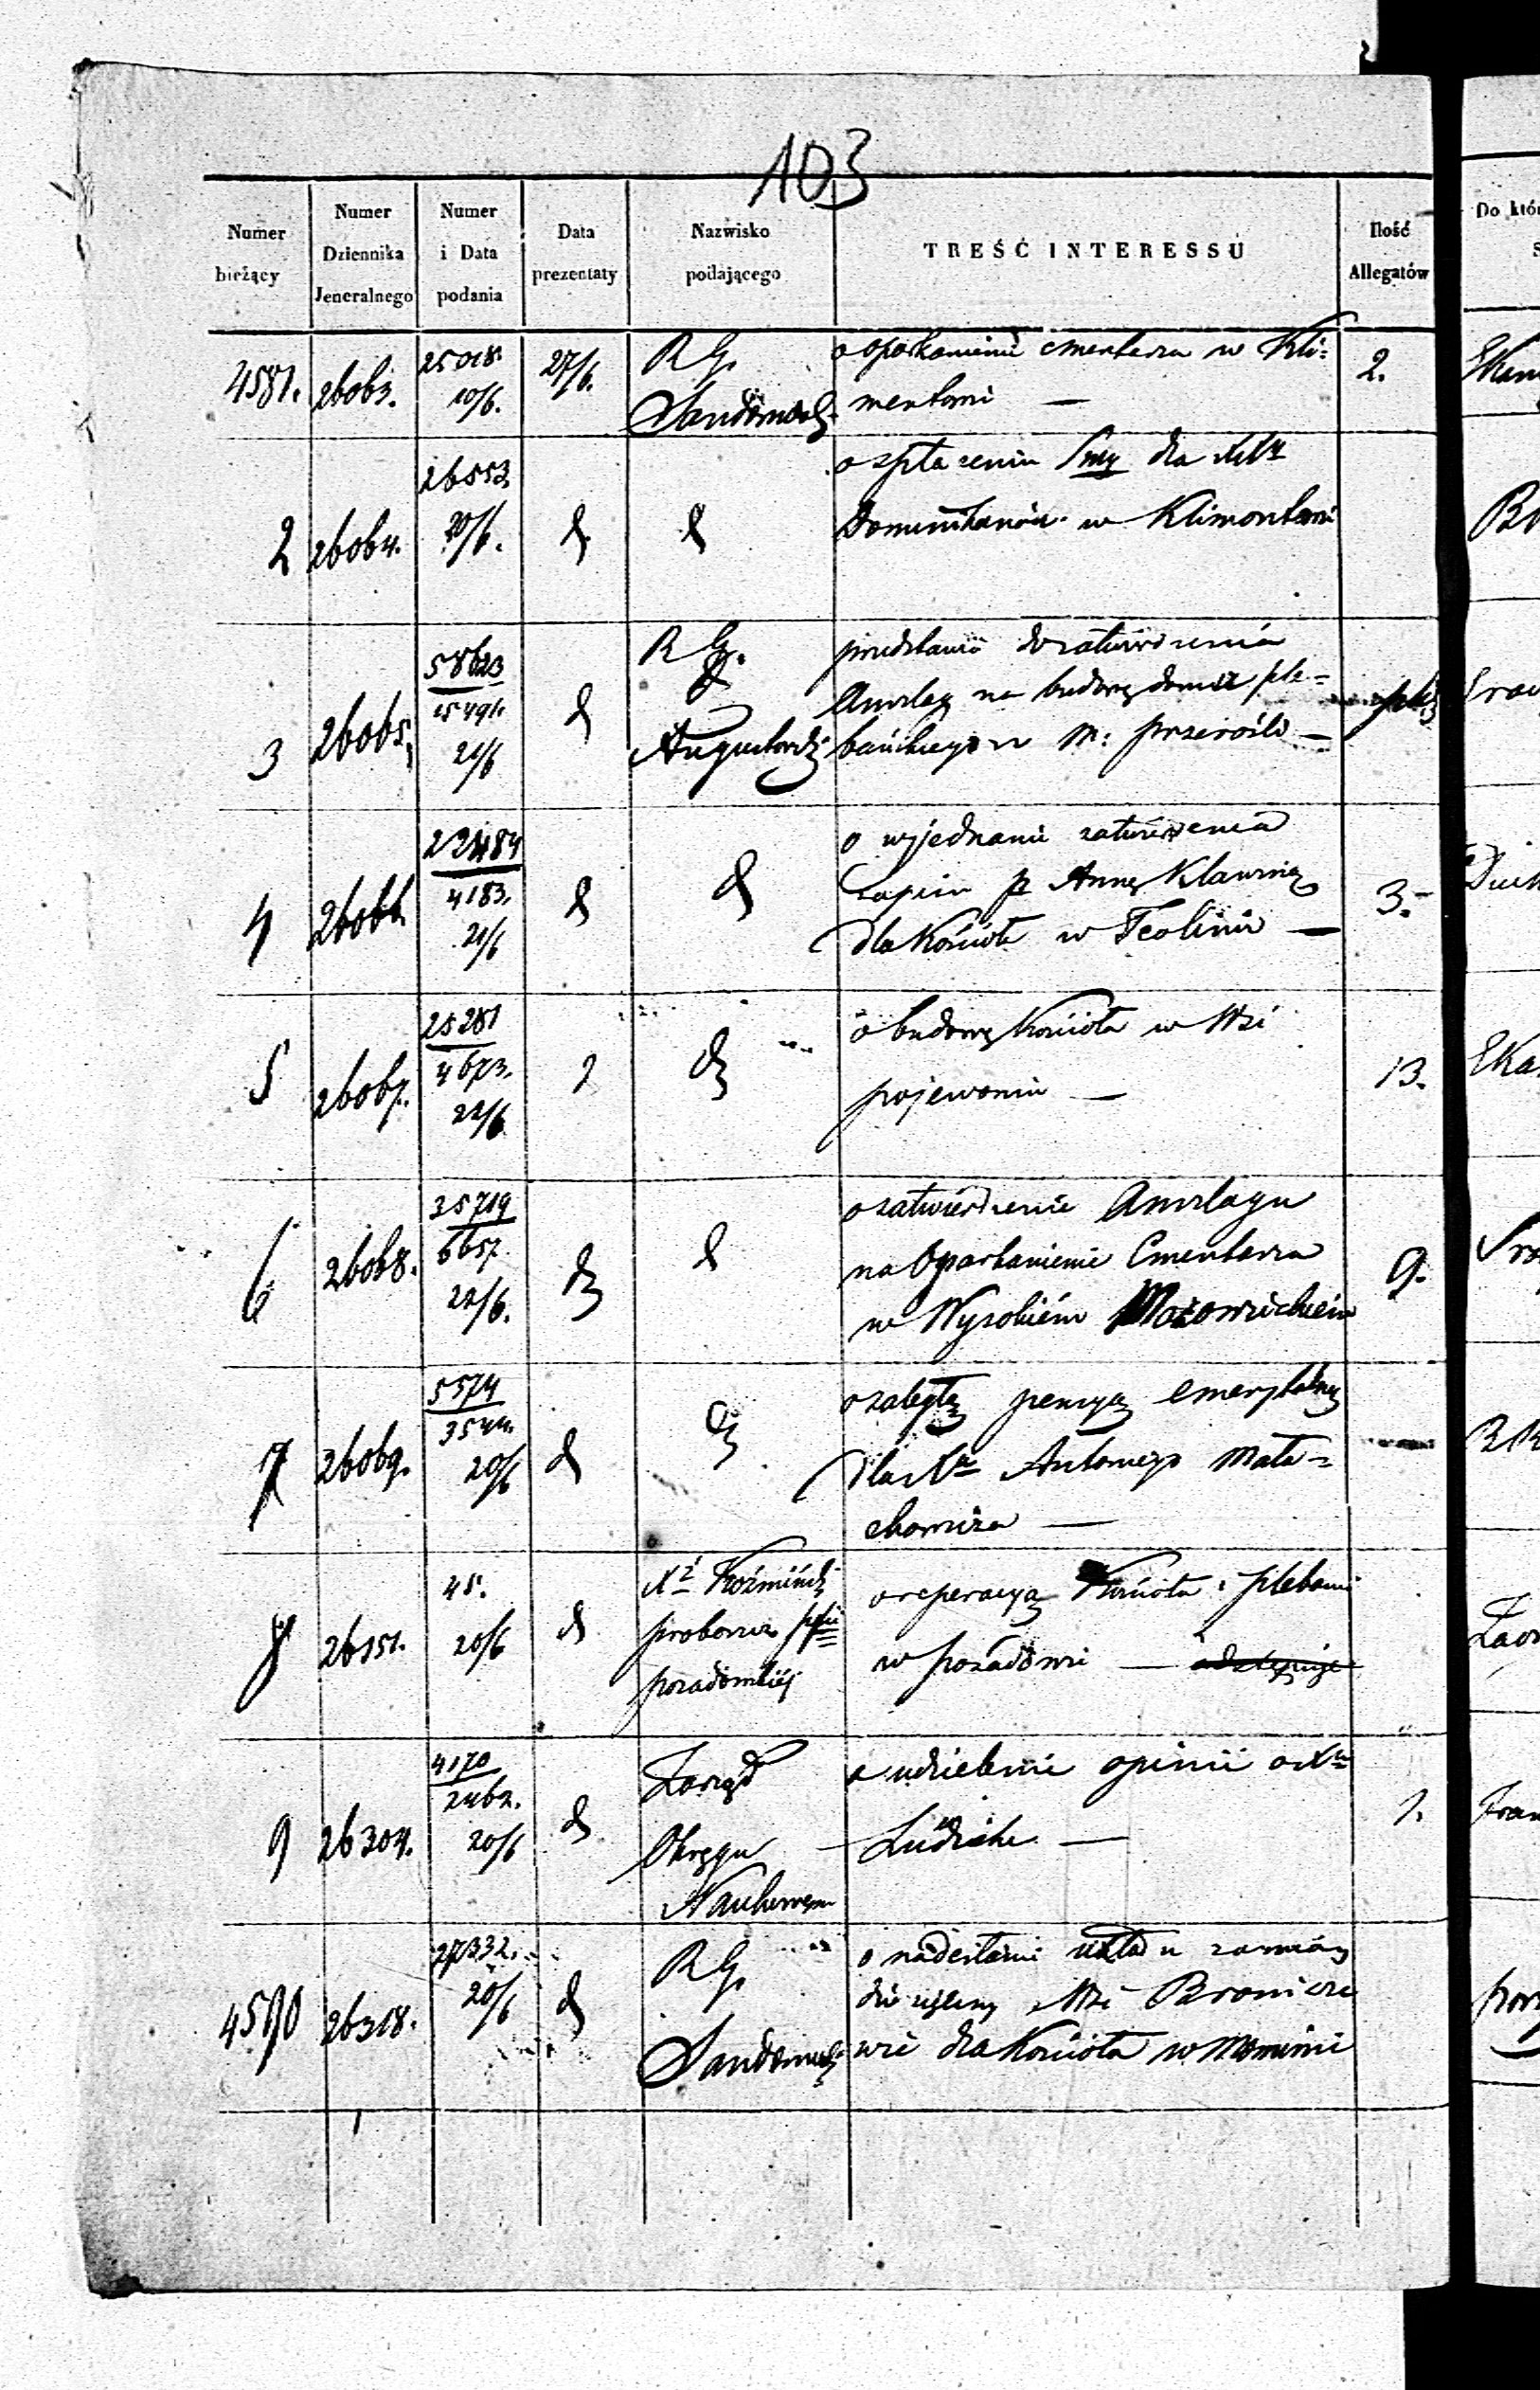 103
Numer bieżący
Numer Dziennika Jeneralnego
Numer i Data podania
Data prezentaty
Nazwisko podającego
TREŚĆ INTERESSU
Ilość Allegatów
Do któ
4581. 26063. 25018. 10/6. 27/6. R G. Sandomirsk.
o oparkanienie cmentarza w Kli=
mentowi —
2.
2 26064. 26553. 20/6. d d
o zpłacenie Sumy dla XXy
Dominikanów w Klimontowi
3 26065. 58623 15491. 21/6 d R G. Augustowski
przedstawia do zatwierdzenia
Anszlag na budowę domu ple=
bańskiego w M: Przerośli —
4 26066. 22484 4183. 21/6 d d
o wyjednanie zatwierdzenia
zapisu p Annę Klawinię
dla Kościoła w Teolinie —
3.
5 26067. 25281 4673. 22/6 d d
o budowę Kościoła w Wsi
Pojewoniu —
13.
6 26068. 35719 6657. 22/6. d d
o zatwierdzenie Anszlagu
na Oparkanienie Cmentarza
w Wysokiém Mazowieckiém
9.
7 26069. 5574 3544. 20/6 d d
o zaległą pensyą emerytalną
dla Xa Antoniego Mała=
chowicza —
8 26151. 45. 20/6 d
Xdz Koźmiński
proboszcz ppfii
pozadowskiéj
o reperacyą Kościoła i plebanii
w Pozadowie —
9 26304. 4170 2462. 20/6 d
Zarząd
Okręgu
Naukowego
o udzielenie opinii o Xu
Ludzicku —
1.
4590 26318. 27332. 20/6 d R G. Sandomirsk
o nadesłanie układu zamiany
dziesięciny z Wsi Bronisze
wic dla Kościoła w Mominie